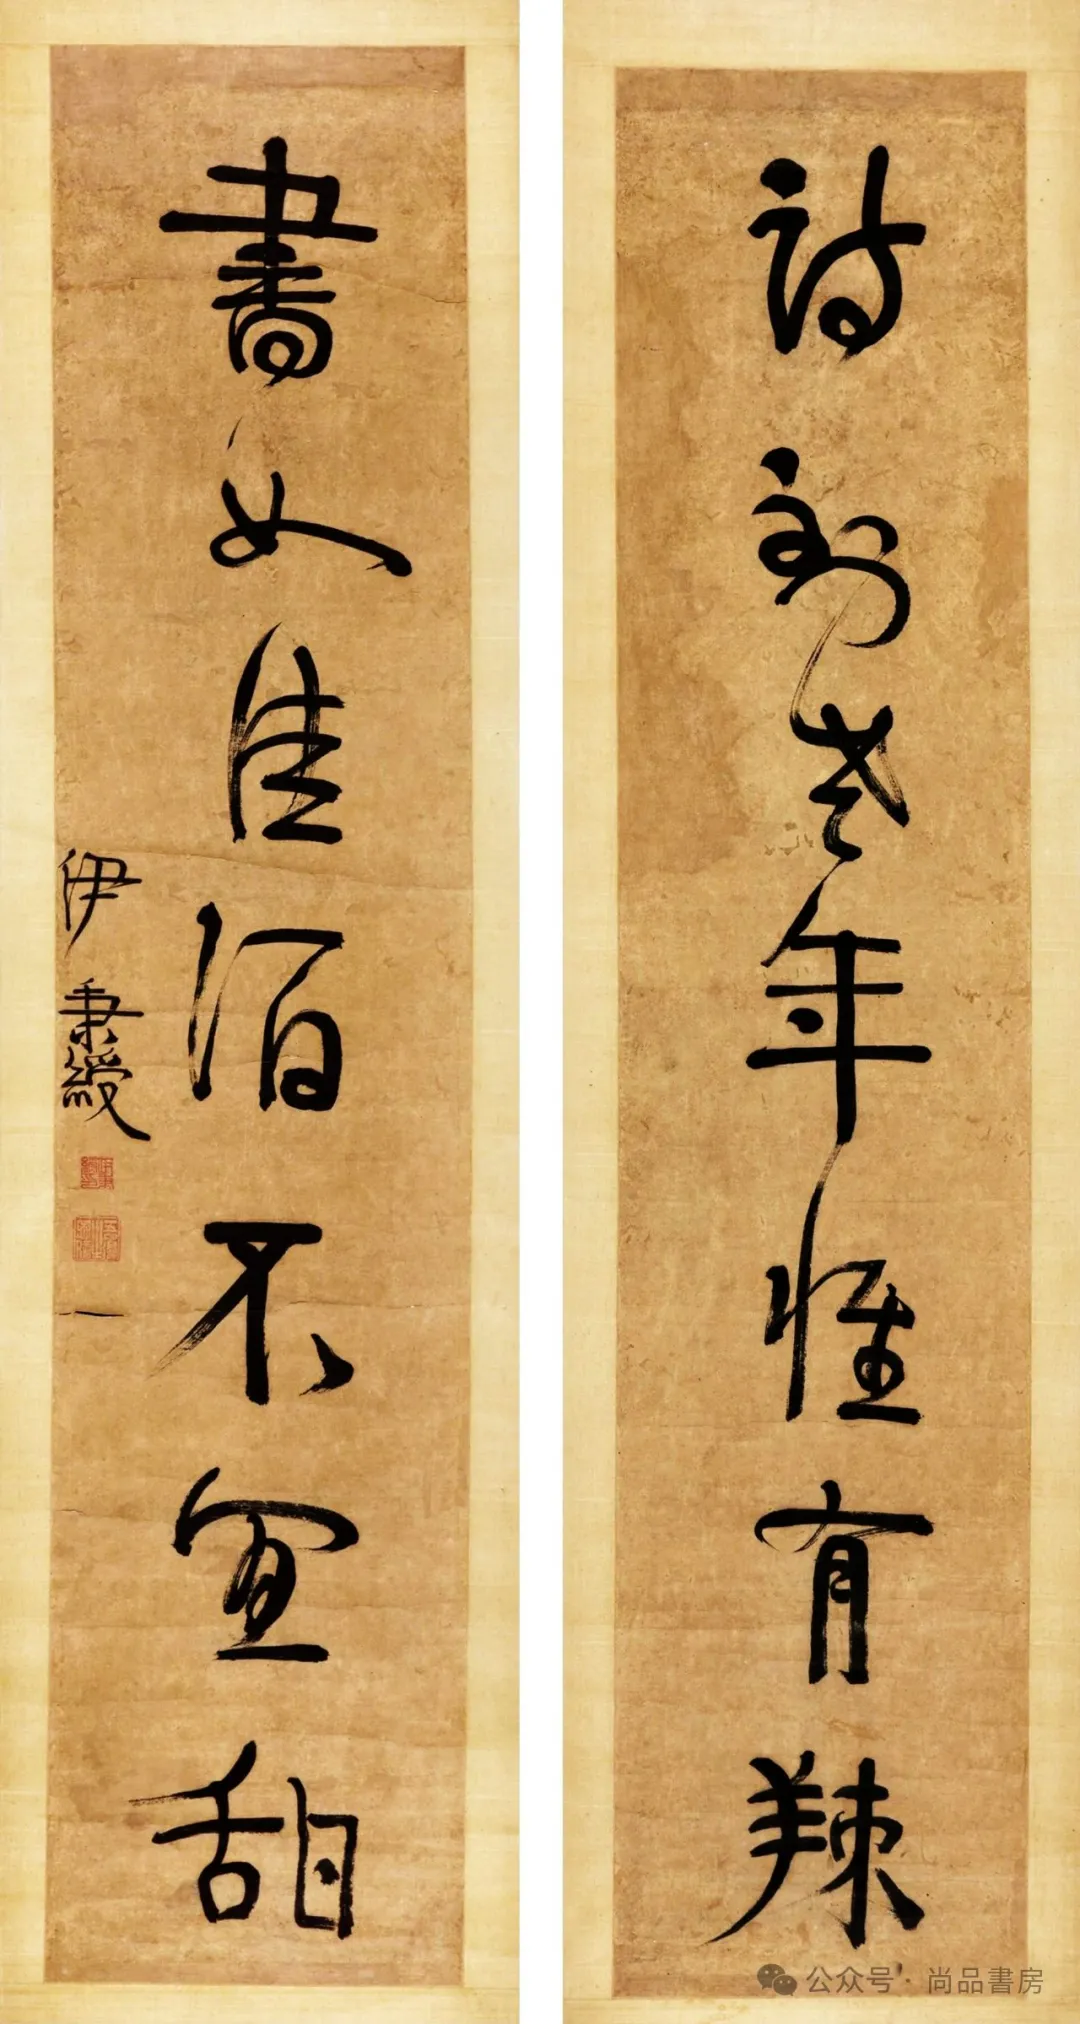 詩到老年惟有辣
書如佳酒不宜甜
伊秉綬
公众号·尚品書房